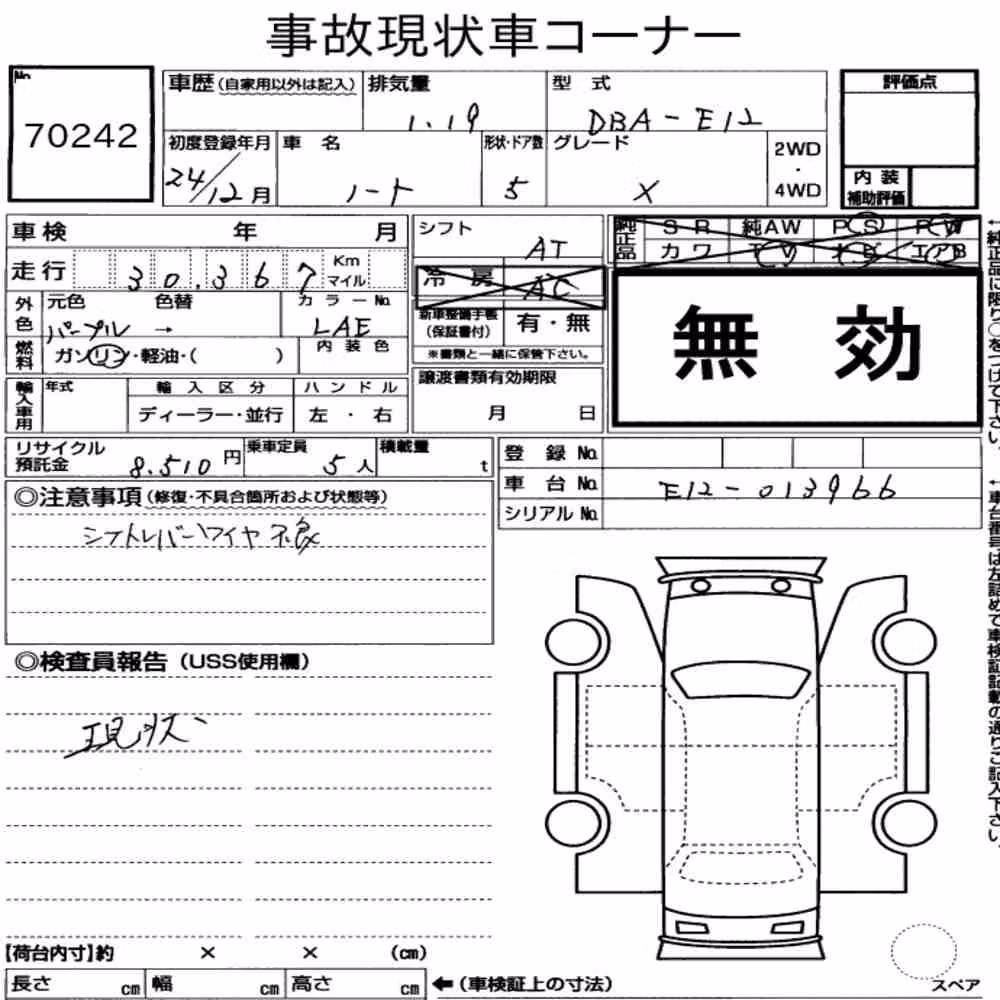 事故現状車コーナー
No.
70242
車歴 (自家用以外は記入) 排気量 型式 評価点
1.19 DBA-E12
初度登録年月 車名 形状・ドア数 グレード 2WD・4WD 内装補助評価
24/12月 ノート 5 X
車検 年 月 シフト AT
純正品 SR 純AW PS PW
カワ TV ナビ エアB
走行 30.367 Km マイル 冷房 AC
外色 元色 色替 カラーNo.
パープル → LAE
新車整備手帳(保証書付) 有・無
燃料 ガソリン・軽油・( ) 内装色
※書類と一緒に保管下さい。
無効
輸入車用 年式 輸入区分 ハンドル
ディーラー・並行 左・右
譲渡書類有効期限
月 日
リサイクル預託金 8.510円 乗車定員 5人 積載量 t
登録No.
車台No. E12-013966
シリアルNo.
◎注意事項(修復・不具合箇所および状態等)
シフトレバーワイヤ不良
◎検査員報告(USS使用欄)
現状
【荷台内寸】約 × × (cm)
長さ cm 幅 cm 高さ cm ←(車検証上の寸法)
スペア
←純正品に限り○をつけて下さい。
←車台番号は左詰めで車検証記載の通りご記入下さい。